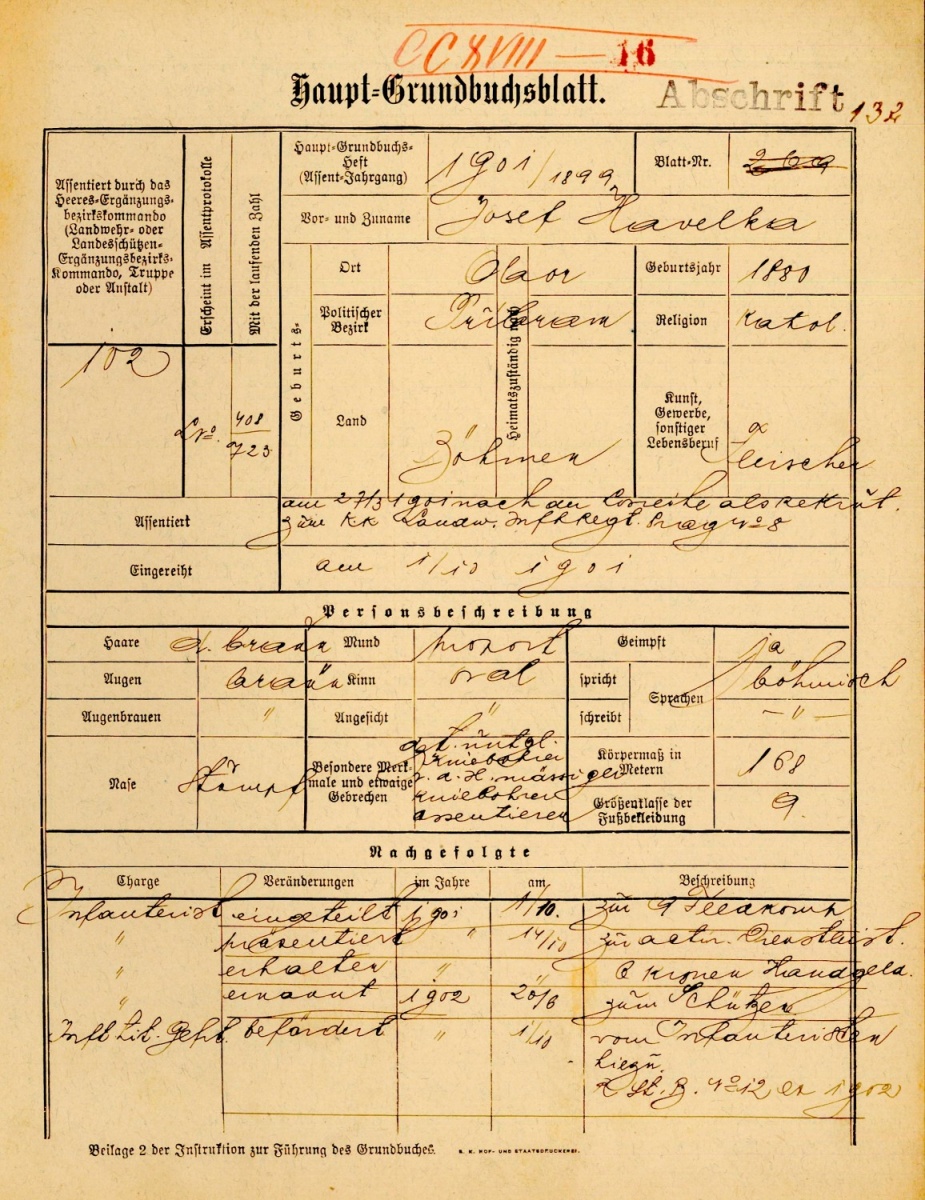 CCXVIII — 16
Haupt-Grundbuchsblatt.
Abschrift
132
Assentiert durch das
Heeres-Ergänzungs-
bezirkskommando
(Landwehr- oder
Landesschützen-
Ergänzungsbezirks-
Kommando, Truppe
oder Anstalt)
102
Erscheint im Assentprotokolle
Mit der laufenden Zahl
LNo.
408
723
Haupt-Grundbuchs-
Heft
(Assent-Jahrgang)
1901/1899
Blatt-Nr.
269
Vor- und Zuname
Josef Havelka
Geburts-
Ort
Obor
Geburtsjahr
1880
Politischer
Bezirk
Přibram
Heimatszuständig
Religion
Katol.
Land
Böhmen
Kunst,
Gewerbe,
sonstiger
Lebensberuf
Fleischer
Assentiert
am 27/3 1901 nach der Losreihe als Rekrut.
zum KK Landw. Inft Regt. Prag No 8
Eingereiht
am 1/10 1901
Personsbeschreibung
Haare
d. braun
Mund
proport
Geimpft
ja
Augen
braun
Kinn
oval
spricht
Sprachen
böhmisch
Augenbrauen
"
Angesicht
"
schreibt
— " —
Nase
Stumpf
Besondere Merk-
male und etwaige
Gebrechen
z. d. H. mässiger
Kniebohrer
assentieren
Körpermaß in
Metern
168
Größenklasse der
Fußbekleidung
9.
Nachgefolgte
Charge
Veränderungen
im Jahre
am
Beschreibung
Infanterist eingeteilt 1901 1/10. zur 9 Feldkomp
" präsentiert " 14/10 zur activ. Dienstleist.
" erhalten " " 6 Kronen Handgeld.
" ernannt 1902 20/6 zum Schützen
Inft Tit. Gefrt. befördert " 1/10 vom Infanteristen
hiezu.
St. B. No 12 ex 1902
Beilage 2 der Instruktion zur Führung des Grundbuches.
K. K. HOF- UND STAATSDRUCKEREI.